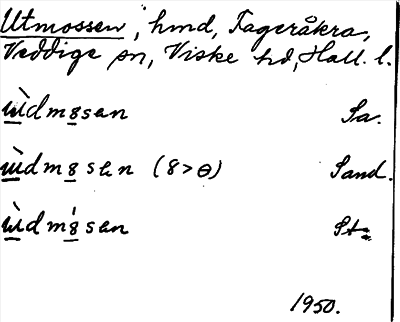 Utmossen, hmd, Fageråkra,
Veddige sn, Viske hd, Hall. l.
ẁdm8sen Sa.
ẁdm8sen (8>ɵ) Sand.
ẁdḿ8sen St
1950.